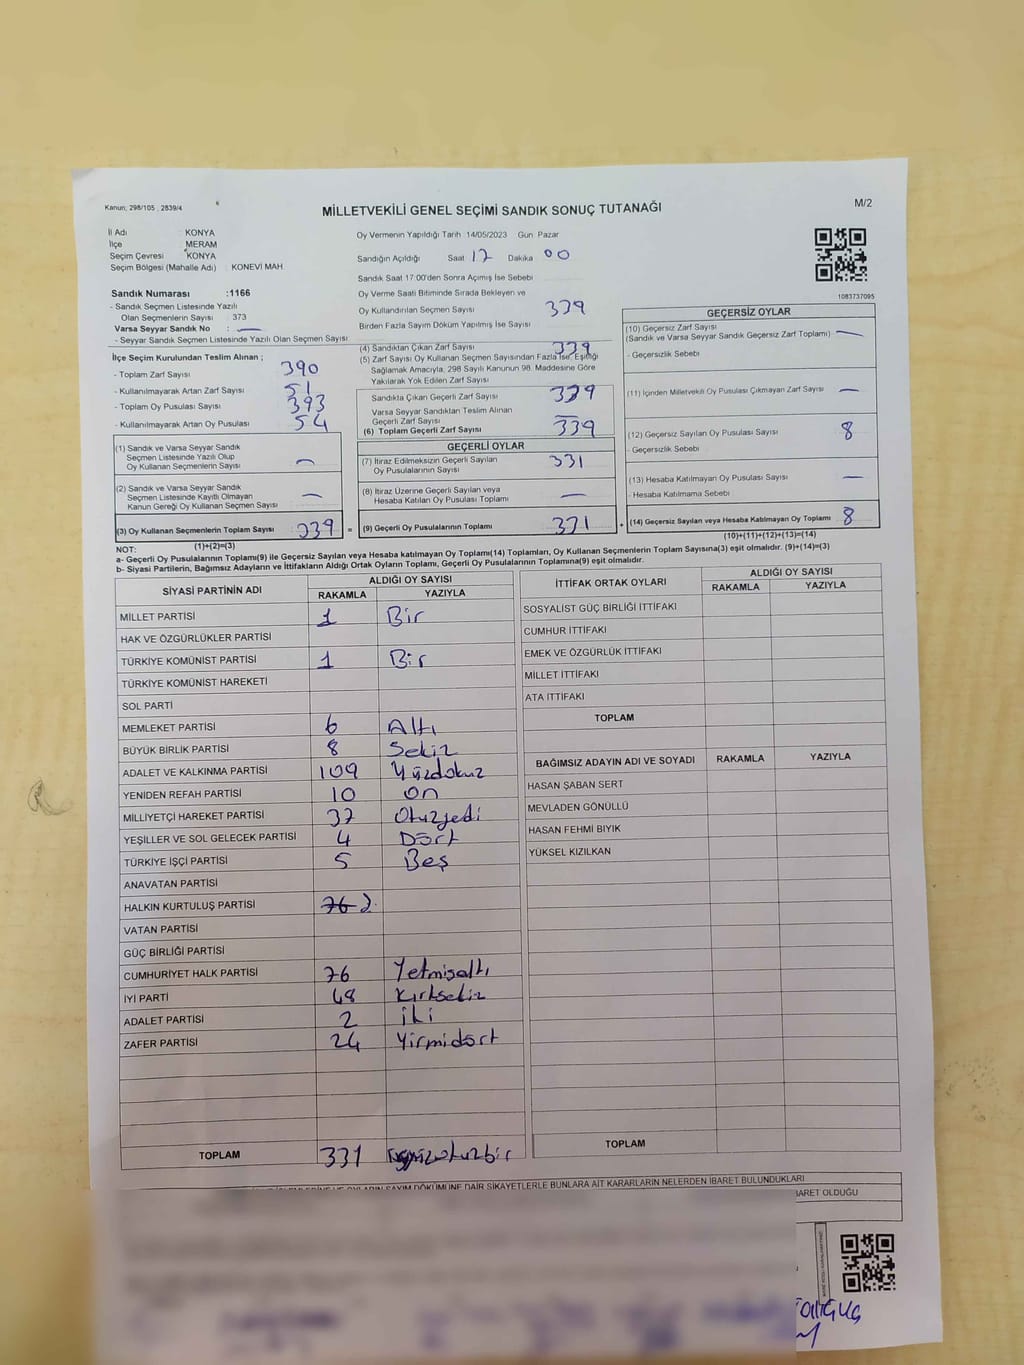 Kanun; 298/105 , 2839/4
MİLLETVEKİLİ GENEL SEÇİMİ SANDIK SONUÇ TUTANAĞI
M/2
İl Adı : KONYA
İlçe : MERAM
Seçim Çevresi : KONYA
Seçim Bölgesi (Mahalle Adı) : KONEVİ MAH
Sandık Numarası :1166
- Sandık Seçmen Listesinde Yazılı
Olan Seçmenlerin Sayısı : 373
Varsa Seyyar Sandık No : —
- Seyyar Sandık Seçmen Listesinde Yazılı Olan Seçmen Sayısı
Oy Vermenin Yapıldığı Tarih 14/05/2023 Gün Pazar
Sandığın Açıldığı Saat 17 Dakika 00
Sandık Saat 17:00'den Sonra Açımış İse Sebebi
Oy Verme Saati Bitiminde Sırada Bekleyen ve
Oy Kullandırılan Seçmen Sayısı 339
Birden Fazla Sayım Döküm Yapılmış İse Sayısı
1083737095
İlçe Seçim Kurulundan Teslim Alınan ;
- Toplam Zarf Sayısı 390
- Kullanılmayarak Artan Zarf Sayısı 51
- Toplam Oy Pusulası Sayısı 393
- Kullanılmayarak Artan Oy Pusulası 54
(1) Sandık ve Varsa Seyyar Sandık
Seçmen Listesinde Yazılı Olup
Oy Kullanan Seçmenlerin Sayısı —
(2) Sandık ve Varsa Seyyar Sandık
Seçmen Listesinde Kayıtlı Olmayan
Kanun Gereği Oy Kullanan Seçmen Sayısı —
(3) Oy Kullanan Seçmenlerin Toplam Sayısı 339 =
(1)+(2)=(3)
(4) Sandıktan Çıkan Zarf Sayısı 339
(5) Zarf Sayısı Oy Kullanan Seçmen Sayısından Fazla İse, Eşitliği
Sağlamak Amacıyla, 298 Sayılı Kanunun 98. Maddesine Göre
Yakılarak Yok Edilen Zarf Sayısı
Sandıkta Çıkan Geçerli Zarf Sayısı 339
Varsa Seyyar Sandıktan Teslim Alınan
Geçerli Zarf Sayısı —
(6) Toplam Geçerli Zarf Sayısı 339
GEÇERLİ OYLAR
(7) İtiraz Edilmeksizin Geçerli Sayılan
Oy Pusulalarının Sayısı 331
(8) İtiraz Üzerine Geçerli Sayılan veya
Hesaba Katılan Oy Pusulaları Toplamı —
(9) Geçerli Oy Pusulalarının Toplamı 331 +
GEÇERSİZ OYLAR
(10) Geçersiz Zarf Sayısı
(Sandık ve Varsa Seyyar Sandık Geçersiz Zarf Toplamı) —
- Geçersizlik Sebebi
(11) İçinden Milletvekili Oy Pusulası Çıkmayan Zarf Sayısı —
(12) Geçersiz Sayılan Oy Pusulası Sayısı 8
- Geçersizlik Sebebi
(13) Hesaba Katılmayan Oy Pusulası Sayısı —
- Hesaba Katılmama Sebebi
(14) Geçersiz Sayılan veya Hesaba Katılmayan Oy Toplamı 8
(10)+(11)+(12)+(13)=(14)
NOT:
a- Geçerli Oy Pusulalarının Toplamı(9) ile Geçersiz Sayılan veya Hesaba katılmayan Oy Toplamı(14) Toplamları, Oy Kullanan Seçmenlerin Toplam Sayısına(3) eşit olmalıdır. (9)+(14)=(3)
b- Siyasi Partilerin, Bağımsız Adayların ve İttifakların Aldığı Ortak Oyların Toplamı, Geçerli Oy Pusulalarının Toplamına(9) eşit olmalıdır.
SİYASİ PARTİNİN ADI ALDIĞI OY SAYISI
RAKAMLA YAZIYLA
MİLLET PARTİSİ 1 Bir
HAK VE ÖZGÜRLÜKLER PARTİSİ
TÜRKİYE KOMÜNİST PARTİSİ 1 Bir
TÜRKİYE KOMÜNİST HAREKETİ
SOL PARTİ
MEMLEKET PARTİSİ 6 Altı
BÜYÜK BİRLİK PARTİSİ 8 Sekiz
ADALET VE KALKINMA PARTİSİ 109 Yüzdokuz
YENİDEN REFAH PARTİSİ 10 On
MİLLİYETÇİ HAREKET PARTİSİ 37 Otuzyedi
YEŞİLLER VE SOL GELECEK PARTİSİ 4 Dört
TÜRKİYE İŞÇİ PARTİSİ 5 Beş
ANAVATAN PARTİSİ
HALKIN KURTULUŞ PARTİSİ 76
VATAN PARTİSİ
GÜÇ BİRLİĞİ PARTİSİ
CUMHURİYET HALK PARTİSİ 76 Yetmişaltı
İYİ PARTİ 48 Kırksekiz
ADALET PARTİSİ 2 İki
ZAFER PARTİSİ 24 Yirmidört
TOPLAM 331
İTTİFAK ORTAK OYLARI ALDIĞI OY SAYISI
RAKAMLA YAZIYLA
SOSYALİST GÜÇ BİRLİĞİ İTTİFAKI
CUMHUR İTTİFAKI
EMEK VE ÖZGÜRLÜK İTTİFAKI
MİLLET İTTİFAKI
ATA İTTİFAKI
TOPLAM
BAĞIMSIZ ADAYIN ADI VE SOYADI RAKAMLA YAZIYLA
HASAN ŞABAN SERT
MEVLADEN GÖNÜLLÜ
HASAN FEHMİ BIYIK
YÜKSEL KIZILKAN
TOPLAM
DAİR ŞİKAYETLERLE BUNLARA AİT KARARLARIN NELERDEN İBARET BULUNDUKLARI
OLDUĞU